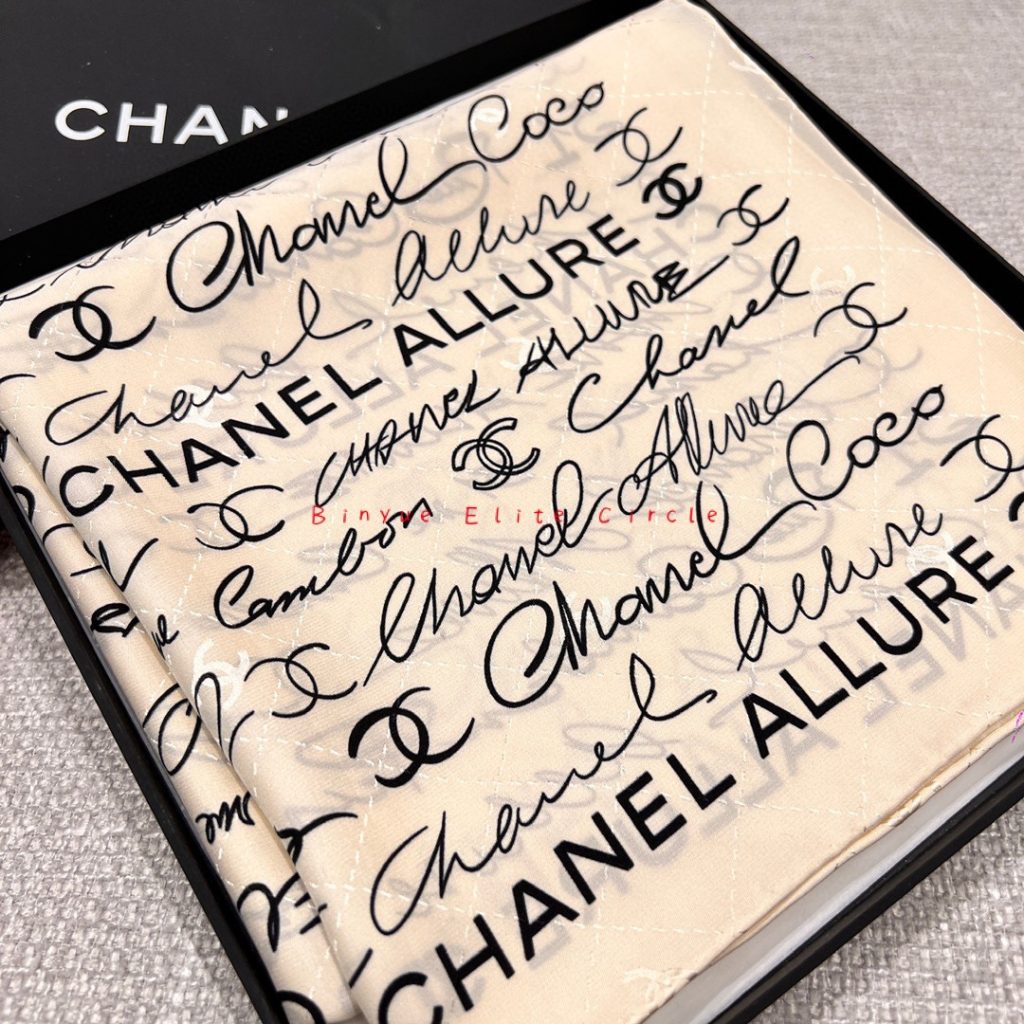 CHAN
Chanel Coco
Chanel Allure
CHANEL ALLURE
CHANEL ALLURE
Cambon Chanel
Binyue Elite Circle
Chanel Allure
Chanel Coco
Chanel Allure
CHANEL ALLURE